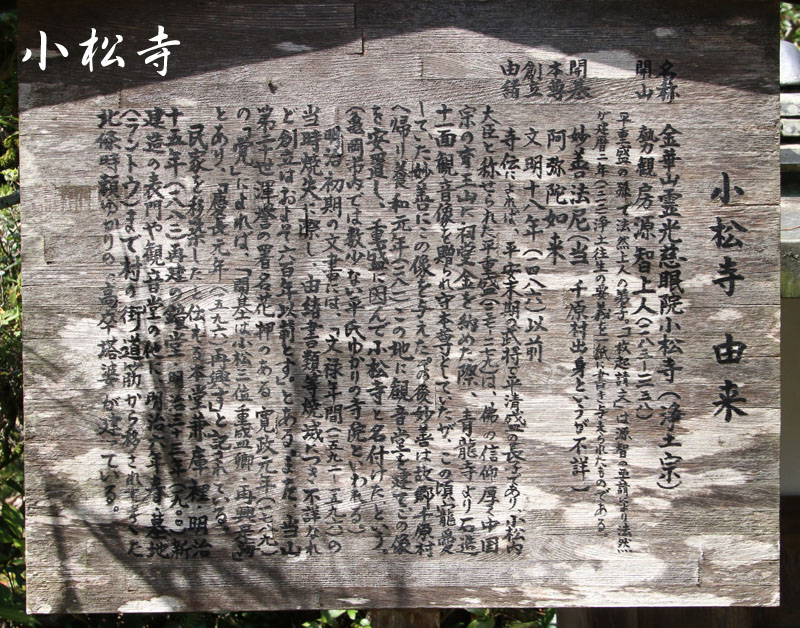 小松寺
小松寺 由来
名称 金華山霊光慈眼院小松寺(浄土宗)
開山 勢観房源智上人(一一八三〜一二三八)
平重盛の孫で法然上人の弟子「一枚起請文」は源智の要請により法然
が建暦二年(一二一二)浄土往生の要義を一紙に書き与えられたものである。
開基 妙善法尼(当 千原村出身というが不詳)
本尊 阿弥陀如来
創立 文明十八年(一四八六)以前
由緒 寺伝によれば、平安末期の武将で平清盛の長子であり、小松内
大臣と称せられた平重盛(一一三七〜一一七九)は、佛の信仰厚く中国
宗の育王山に祠堂金を納めた際、青龍寺より石造
十一面観音像を贈られ守本尊としていたが、この頃寵愛
して、た妙善にこの像を与えた。「その後妙善は故郷千原村
へ帰り養和元年(一一八一)この地に観音堂を建てこの像
を安置し、重盛に因んで小松寺と名付けたという。
(亀岡市内では数少ない平氏ゆかりの寺院といわれる)
明治初期の文書には、「文禄年間(一五九二〜一五九六)の
当時焼失に際し、由緒書類等焼滅につき不詳なれ
ど創立はおよそ六百年以前とす」とある。また、当山
第十世渾誉の署名花押のある寛政元年(一七八九)
の「覚」によれば、「開基は小松三位重盛卿、再興
とあり、「慶長元年(一五九六)再興す」と記されてる。
民家を移築したと伝れる本堂兼庫裡、明治
十五年(一八八二)再建の鐘堂、明治三十三年(一九〇〇)新
建造の表門や観音堂の他に、明治八年春、墓地
(ラントウ)まで村の街道筋から移されてきた
北条時頼ゆかりの「高卒塔婆」が建っている。